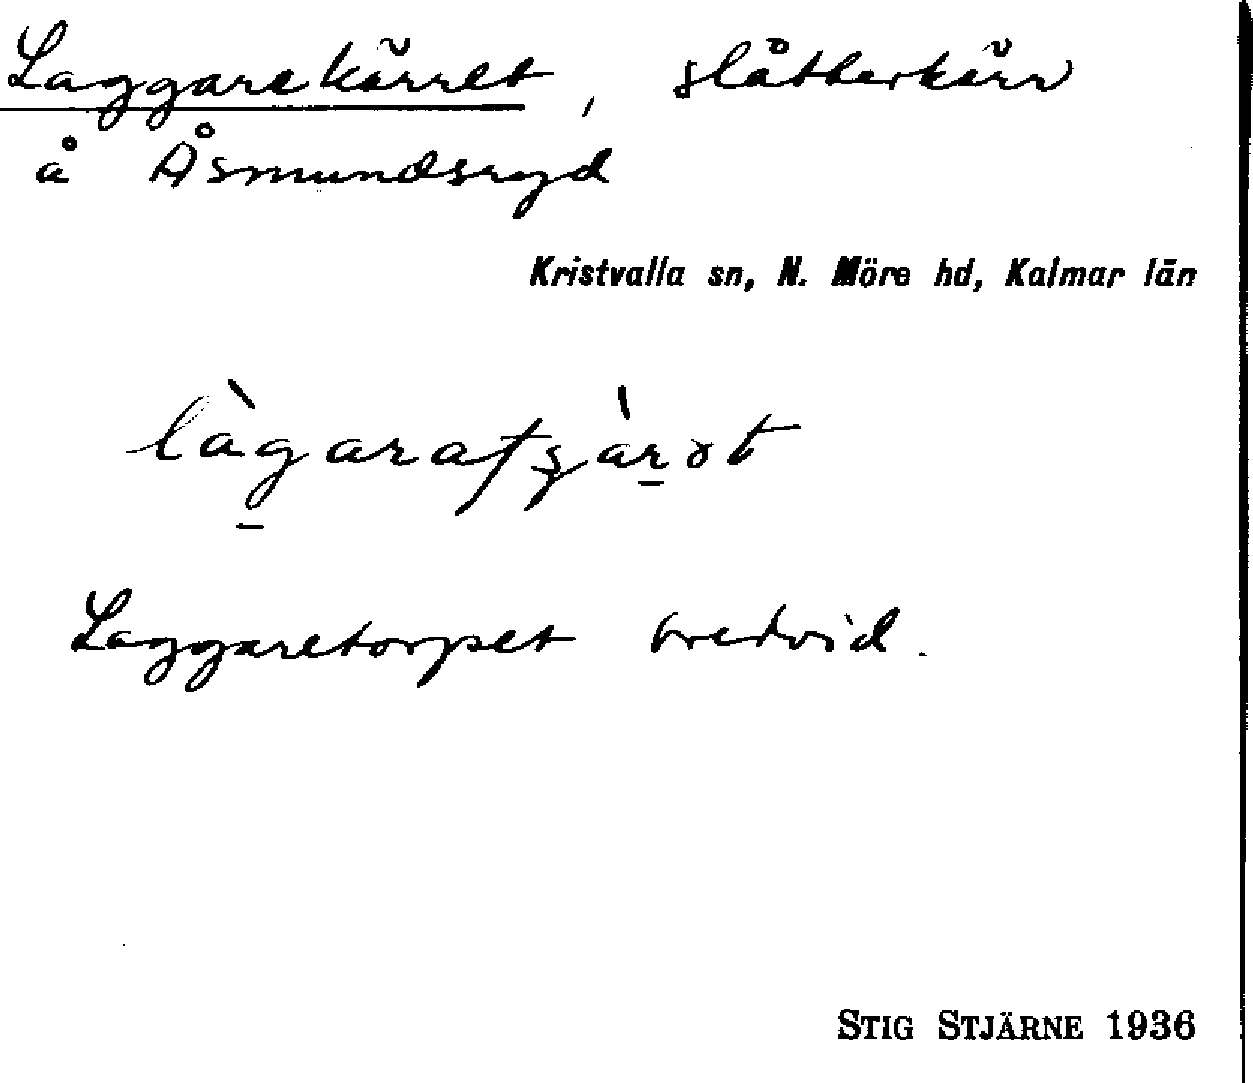 Laggarekärret, slåtterkärr
å Åsmundsryd
Kristvalla sn, N. Möre hd, Kalmar län
Laggaretorpet bredvid.
STIG STJÄRNE 1936